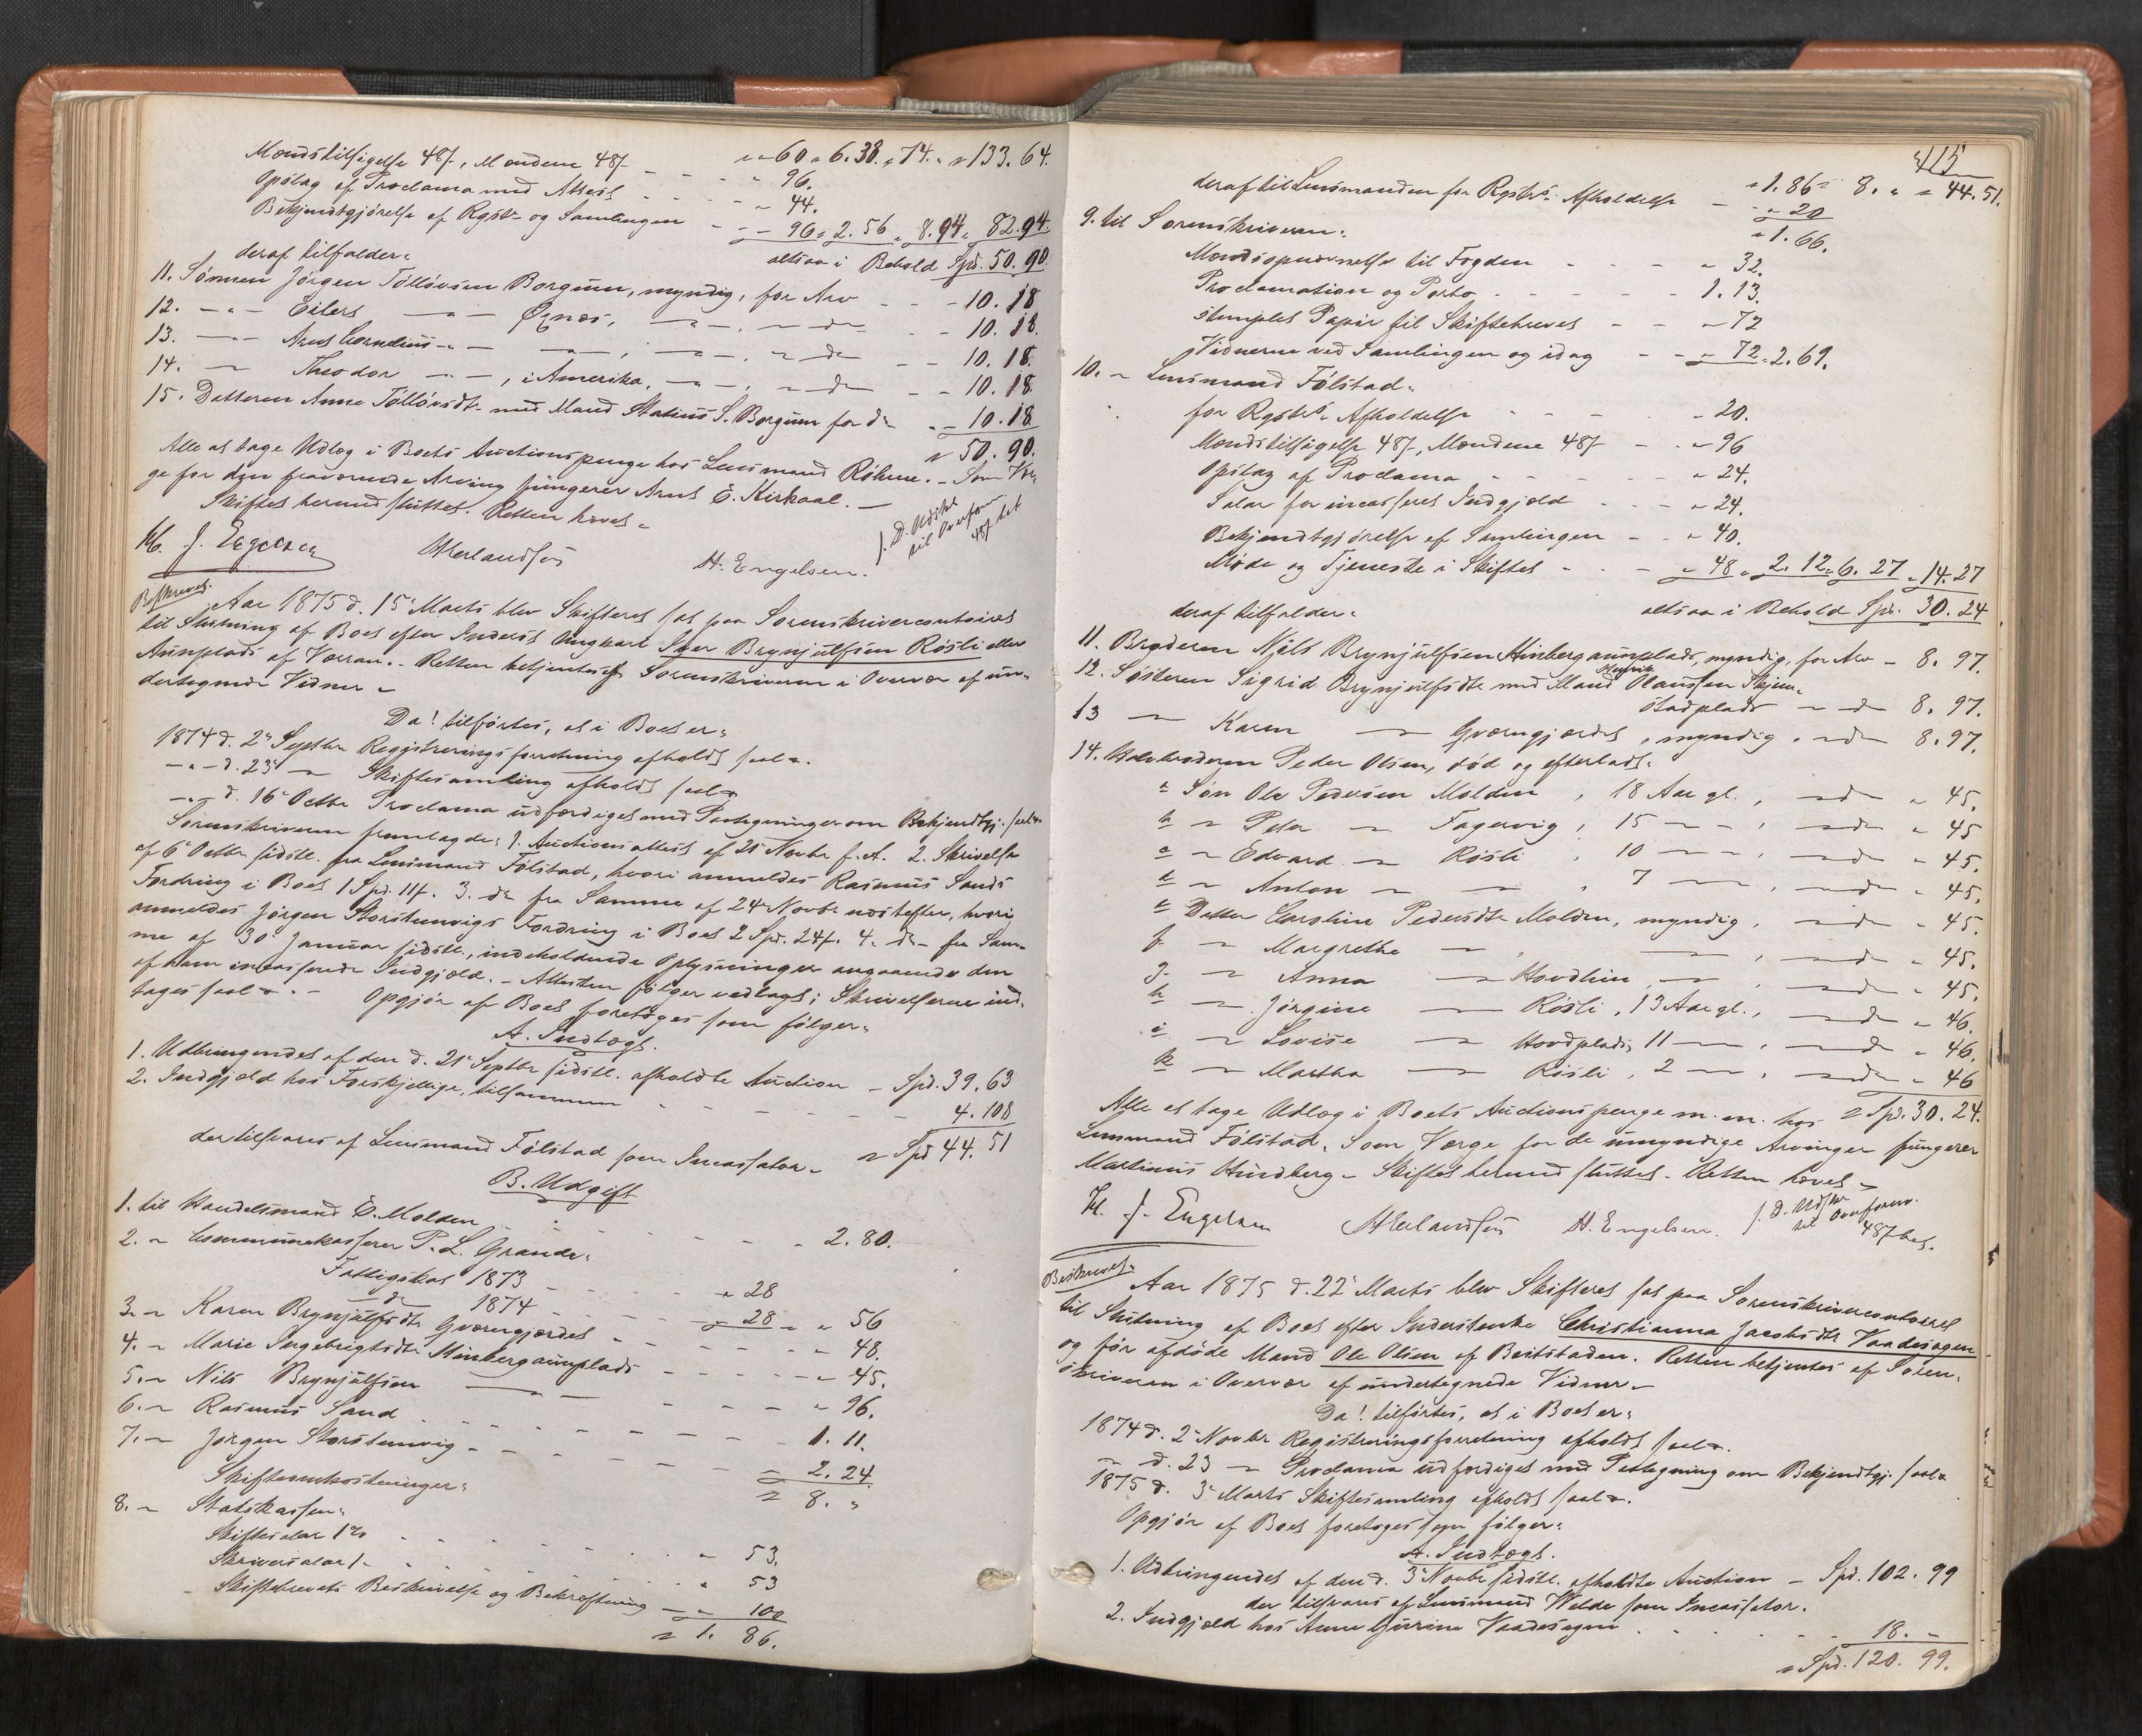 Mændstilsigelse 48/-, Mændene 48/- - - " - 60 " 6. 38. " 74. " " 133. 64.
Opslag af Proclama med Attest - - - " 96.
Bekjendtgjørelse af Regstr. og Samlingen - - " 44.
- " - 96 " 2. 56 " 8. 94 " 82. 94.
deraf tilfalder: altsaa i Behold Spd. 50. 90.
11. Sønnen Jørgen Tølløvsen Borgum, myndig, for Arv - - - 10. 18
12. - " - Eilert - " - Øxnæs, - " - , " do - - 10. 18.
13. - " - Arnt Cornelius - " - - " - , - " - , " do - - 10. 18.
14. - " - Theodor - " - , i Amerika, - " - , " do - - 10. 18.
15. Datteren Anne Tølløvsdtr. med Mand Statius S. Borgum for do - - 10. 18
" 50. 90.
Alle at tage Udlæg i Boets Auctionspenge hos Lensmand Røhme. - Som Vær-
ge for den fraværende Arving fungerer Arnt E. Kirkaal. -
Skiftet hermed sluttet. Retten hævet -
J. D. Udskr.
til Overform
48/ bet
J. Engelsen
H. Engelsen.
Beskrevet.
Aar 1875 d. 15de Marts blev Skifteret sat paa Sorenskrivercontoiret
til Slutning af Boet efter Inderst Ungkarl Iver Brynjulfsen Røsli eller
Aunplads af Værran. - Retten betjentes af Sorenskriveren i Overvær af un-
dertegnede Vidner -
Da! tilførtes, at i Boet er:
1874 d. 2den Septbr Registreringsforretning afholdt saal.
- " - d. 23de " Skiftesamling afholdt saal.
- " - d. 16de Octbr Proclama udfærdiget med Paategninger om Bekjendtgj. saal.
Sorenskriveren fremlagde: 1. Auctionsattest af 21de Novbr f. A. 2. Skrivelse
af 6te Octbr sidstl. fra Lensmand Følstad, hvori anmeldes Rasmus Sands
Fordring i Boet 1 Spd. 11/. 3. do fra Samme af 24de Novbr næstefter, hvori
anmeldes Jørgen Storstenvigs Fordring i Boet 2 Spd. 24/. 4. do - fra Sam-
me af 30te Januar sidstl., indeholdende Oplysninger angaaende den
af ham incasserede Indgjæld. - Attesten følger vedlagt; Skrivelserne ind-
tages saal. - Opgjør af Boet foretoges som følger:
A. Indtægt.
1. Udbringendet af den d. 21de Septbr sidstl. afholdte Auction - Spd. 39. 63
2. Indgjæld hos Forskjellige, tilsammen - - - - - - 4. 108
der tilsvares af Lensmand Følstad som Incassator - " Spd 44. 51
B. Udgift
1. til Handelsmand E. Molden - - - - - - 2. 80.
2. " Communekasserer P. L. Grande:
Fattigskat 1873 - - - - " 28
do 1874 - - - " 28 " " 56
3. " Karen Brynjulfsdtr Gværngjærdet - - - - " 48.
4. " Marie Ingebrigtsdtr Hinbergaunplads - - - - " 45.
5. " Nils Brynjulfsen - " - - - - " 96.
6. " Rasmus Sand - - - - - - 1. 11.
7. " Jørgen Storstenvig - - - - - - 2. 24.
Skifteomkostninger: " 8. "
8. " Statskassen:
Skiftesalær 1% - - - - - " 53.
Skriversalar 1 - - - - - - " 53
Skiftebrevets Beskrivelse og Bekræftning - " 100
" 1. 86.
415
deraf til Lensmanden for Regstr. Afholdelse - " 1. 86 " 8. " " 44. 51.
" 20
9. til Sorenskriveren: " 1. 66.
Mændsopnævnelse til Fogden - - - " 32.
Proclamation og Porto - - - - 1. 13.
stemplet Papir til Skiftebrevet - - - " 72
Vidnerne ved Samlingen og idag - - - " 72 " 2. 69.
10. " Lensmand Følstad:
for Regstr. Afholdelse - - - - " 20.
Mændstilsigelse 48/-, Mændene 48/- - - " 96
Opslag af Proclama - - - - " 24.
Salær for incasseret Indgjæld - - - " 24.
Bekjendtgjørelse af Samlingen - - " 40.
Møde og Tjeneste i Skiftet - - - " 48 " 2. 12 " 6. 27 " 14. 27
deraf tilfalder: altsaa i Behold Spd. 30. 24
11. Broderen Njils Brynjulfsen Hinbergaunplads, myndig, for Arv - 8. 97.
12. Søsteren Sigrid Brynjulfsdtr med Mand Henrik Olaussen Skjem-
stadplads " do 8. 97.
13 " Karen " Gværngjærdet, myndig, " do 8. 97.
14. Halvbroderen Peder Olsen, død og efterladt:
a Søn Ole Pedersen Molden, 18 Aar gl., " do " 45.
b " Peter " Fagervig, 15 " " , " do " 45
c " Edvard " Røsli, 10 " " , " do " 45.
d " Anton " " , 7 " " , " do " 45.
e Datter Caroline Pedersdtr Molden, myndig, " do " 45.
f " Margrethe " " , " , " do " 45.
g " Anna " Hovdlien, " , " do " 45.
h " Jørgine " Røsli, 13 Aar gl., " do " 46.
i " Lovise " Hovdplads, 11 " , " do " 46.
k " Martha " Røsli, 2 " , " do " 46
" Spd. 30. 24.
Alle at tage Udlæg i Boets Auctionspenge m. m. hos
Lensmand Følstad. Som Værge for de umyndige Arvinger fungerer
Martinus Hindberg - Skiftet hermed sluttet. - Retten hævet -
J. Engelsen H. Engelsen.
J. D. Udskr.
til Overform.
48/ bet.
Beskrevet.
Aar 1875 d. 22de Marts blev Skifteret sat paa Sorenskrivercontoiret
til Slutning af Boet efter Inderstenke Christianna Jacobsdtr Vaadesagen
og før afdøde Mand Ole Olsen af Beitstaden. Retten betjentes af Soren-
skriveren i Overvær af undertegnede Vidner -
Da! tilførtes, at i Boet er:
1874 d. 2den Novbr Registreringsforretning afholdt saal.
" d. 23 " Proclama udfærdiget med Paategning om Bekjendtgj. saal.
1875 d. 3de Marts Skiftesamling afholdt saal.
Opgjør af Boet foretoges som følger:
A. Indtægt.
1. Udbringendet af den d. 3de Novbr sidstl. afholdte Auction - Spd. 102. 99
der tilsvares af Lensmand Welde som Incassator.
2. Indgjæld hos Anne Gurine Vaadesagen - - - - 18. "
" Spd. 120. 99.